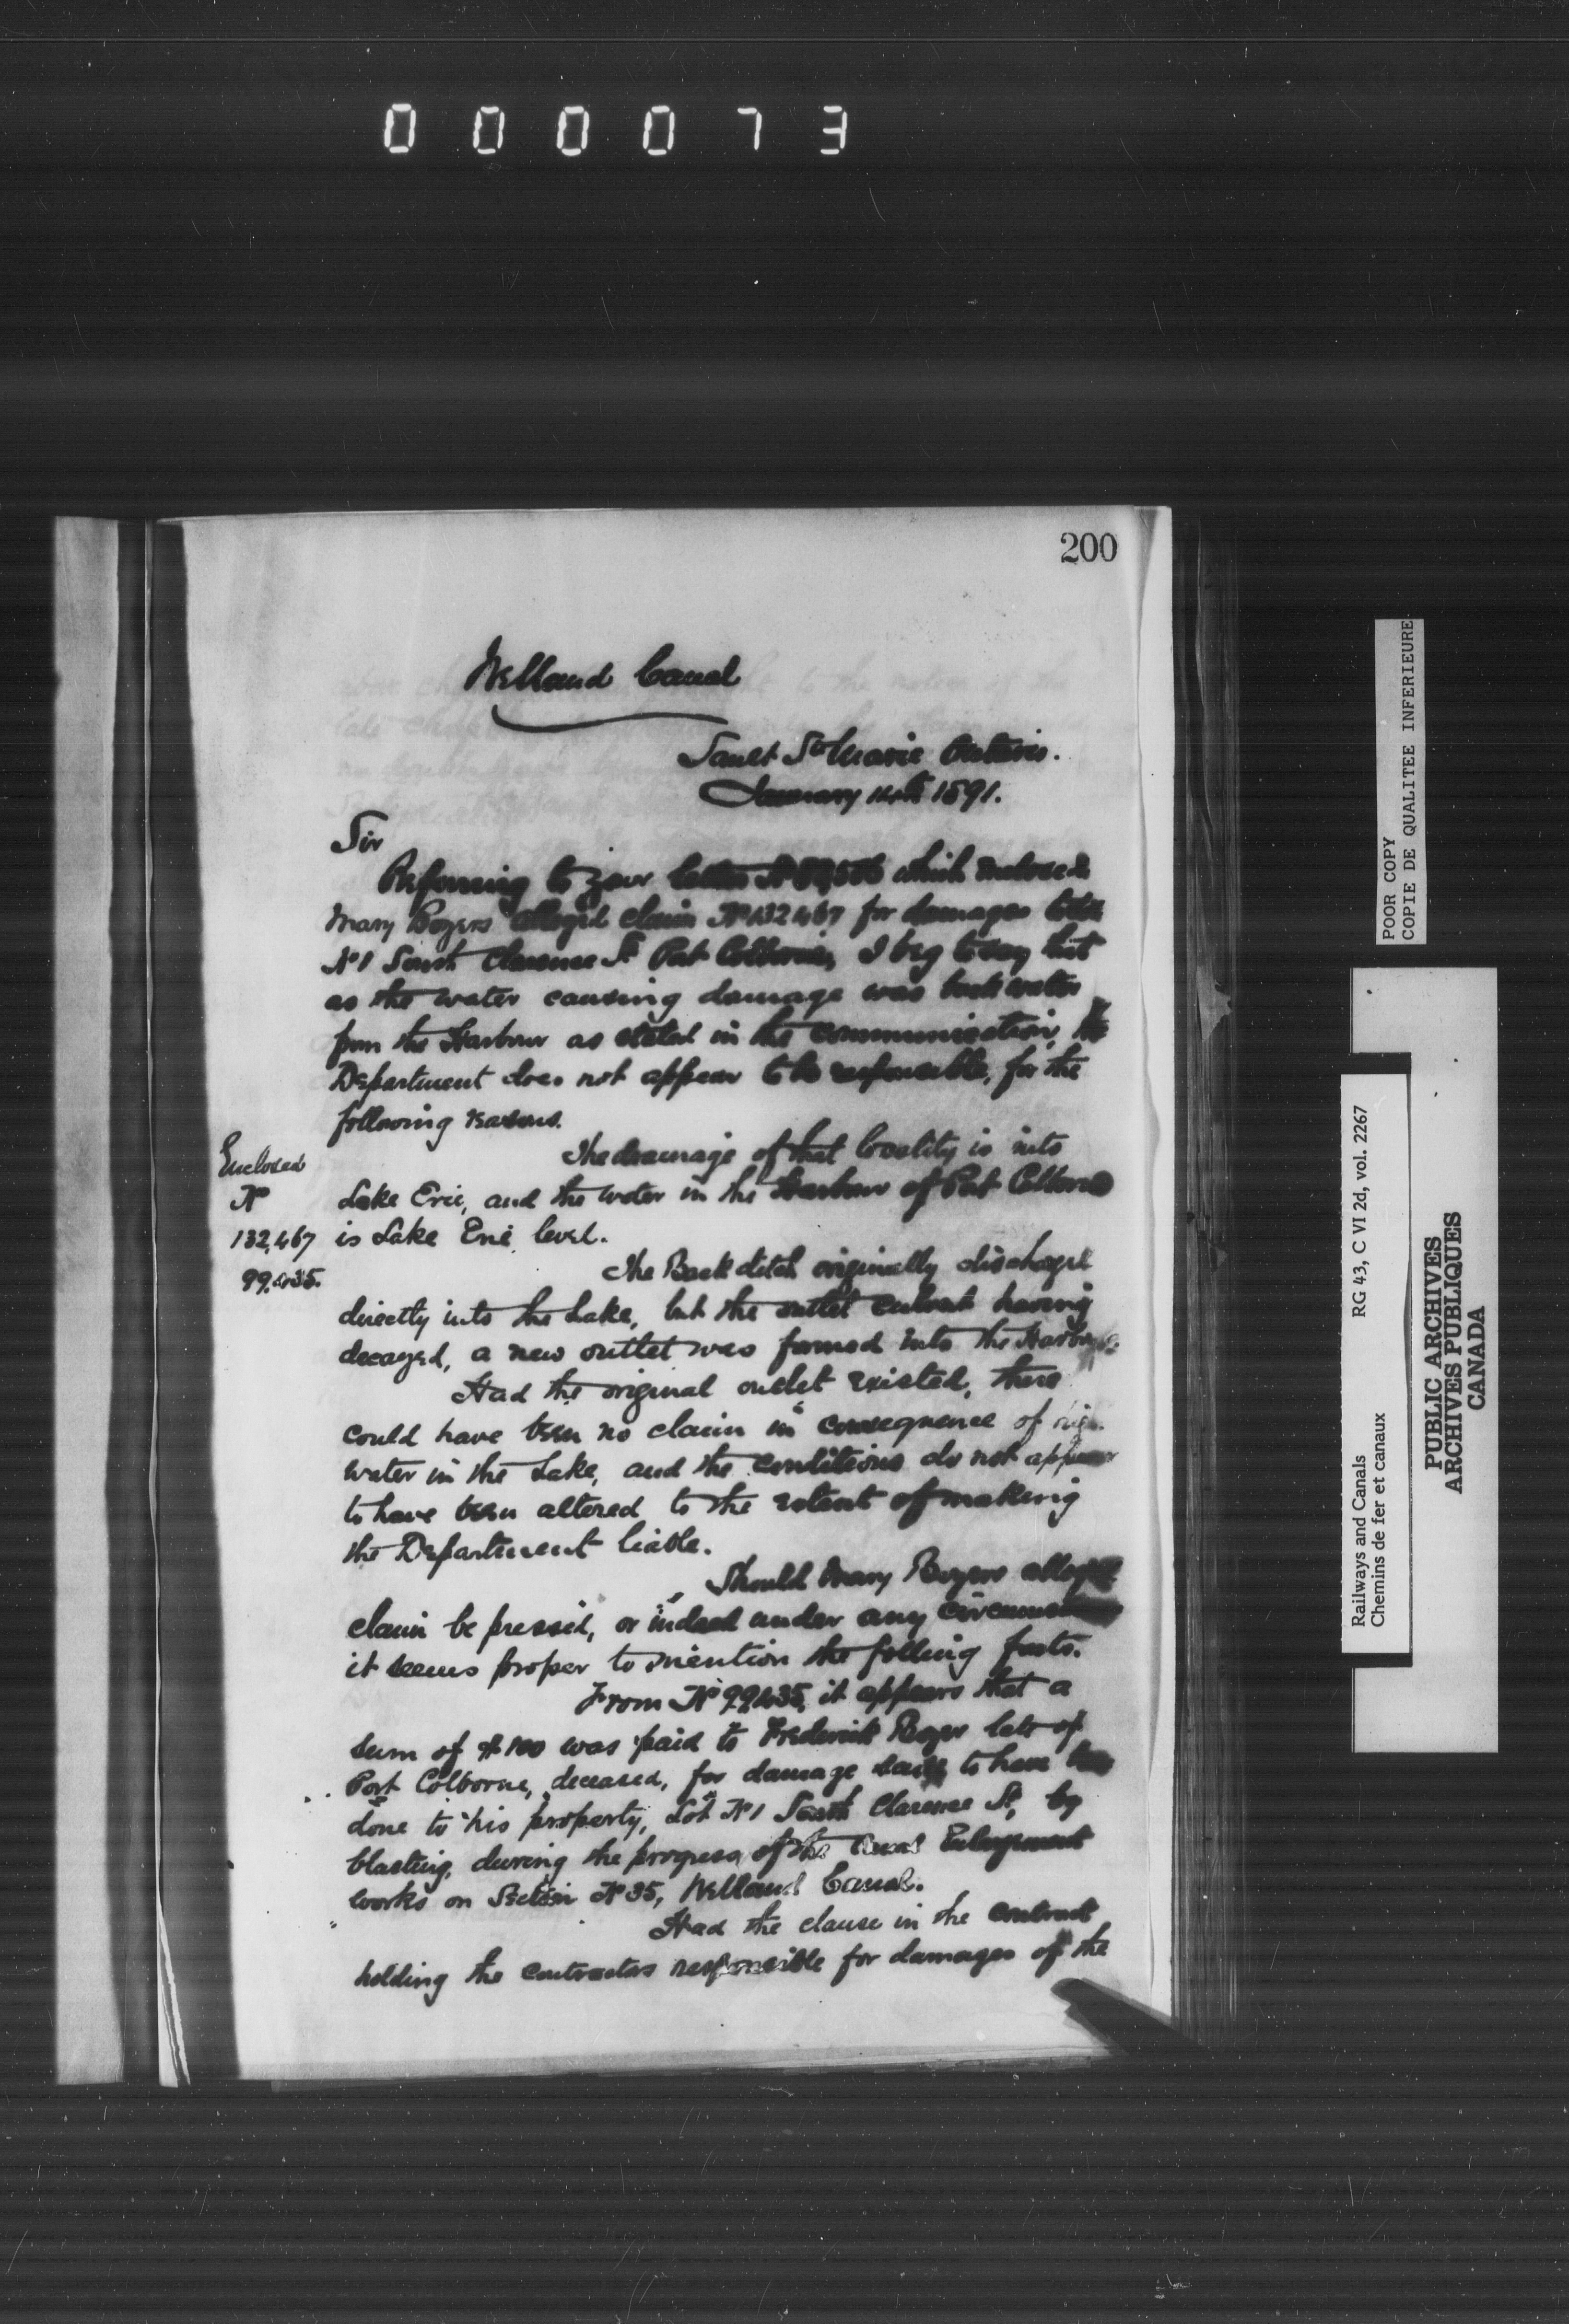 000073
200
Welland Canal
Sault Ste Marie Ontario.
January 14th 1891.
Sir
Referring to your letter No which enclosed
Mary Boyers alleged claim No 132467 for damages to Lot
No 1 South Clarence St Port Colborne, I beg to say that
as the water causing damage was back water
from the Harbour as stated in the communication, the
Department does not appear to be responsible, for the
following reasons.
The drainage of that locality is into
Lake Erie, and the water in the Harbour of Port Colborne
is Lake Erie level.
Enclosed
No
132,467
99,435.
The Back ditch originally discharged
directly into the Lake, but the outlet culvert having
decayed, a new outlet was formed into the Harbour.
Had the original outlet existed, there
could have been no claim in consequence of high
water in the Lake, and the conditions do not appear
to have been altered to the extent of making
the Department liable.
Should Mary Boyers alleged
claim be pressed, or indeed under any circumstances
it seems proper to mention the folling facts.
From No 99435, it appears that a
sum of $100 was paid to Frederick Boyer late of
Port Colborne, deceased, for damage said to have been
done to his property, Lot No 1 South Clarence St, by
blasting, during the progress of the Canal Enlargement
works on Section No 35, Welland Canal.
Had the clause in the contract
holding the contractors responsible for damages of the
POOR COPY
COPIE DE QUALITEE INFERIEURE
Railways and Canals RG 43, C VI 2d, vol. 2267
Chemins de fer et canaux
PUBLIC ARCHIVES
ARCHIVES PUBLIQUES
CANADA